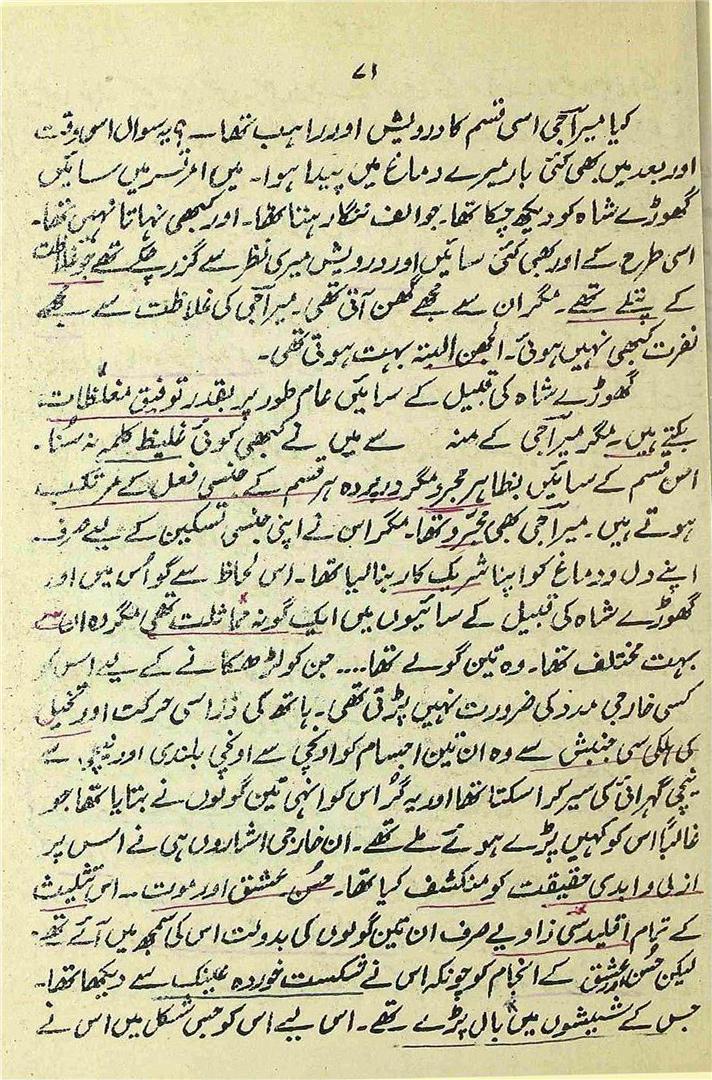 ۷۱
کیا میراجی اسی قسم کا درویش اور راہب تھا۔ ؟ یہ سوال اس وقت
اور بعد میں بھی کئی بار میرے دماغ میں پیدا ہوا۔ میں امرتسر میں سائیں
گھوڑے شاہ کو دیکھ چکا تھا۔ جو الف ننگا رہتا تھا۔ اور کبھی نہاتا نہیں تھا۔
اسی طرح کے اور بھی کئی سائیں اور درویش میری نظر سے گزر چکے تھے جو غلاظت
کے پتلے تھے۔ مگر ان سے مجھے گھن آتی تھی۔ میراجی کی غلاظت سے مجھے
نفرت کبھی نہیں ہوئی۔ الجھن البتہ بہت ہوتی تھی۔
گھوڑے شاہ کی قبیل کے سائیں عام طور پر بقدر توفیق مغلظات
بکتے ہیں۔ مگر میراجی کے منہ سے میں نے کبھی کوئی غلیظ کلمہ نہ سُنا۔
اس قسم کے سائیں بظاہر مجرد مگر درپردہ ہر قسم کے جنسی فعل کے مرتکب
ہوتے ہیں۔ میراجی بھی مجرّد تھا۔ مگر اس نے اپنی جنسی تسکین کے لیے صرف
اپنے دل و دماغ کو اپنا شریک کار بنا لیا تھا۔ اس لحاظ سے گو اُس میں اور
گھوڑے شاہ کی قبیل کے سائیوں میں ایک گونہ مماثلت تھی مگر وہ ان سے
بہت مختلف تھا۔ وہ تین گولے تھا.... جن کو لڑھکانے کے لیے اس کو
کسی خارجی مدد کی ضرورت نہیں پڑتی تھی۔ ہاتھ کی ذرا سی حرکت اور تخیل
کی ہلکی سی جنبش سے وہ ان تین اجسام کو اونچی سے اونچی بلندی اور نیچی سے
نیچی گہرائی کی سیر کرا سکتا تھا اور یہ گُر اس کو انہی تین گولوں نے بتایا تھا جو
غالباً اس کو کہیں پڑے ہوئے ملے تھے۔ ان خارجی اشاروں ہی نے اس پر
ازلی و ابدی حقیقت کو منکشف کیا تھا۔ حُسن عشق اور موت۔۔ اس تثلیث
کے تمام اقلیدسی زاویے صرف ان تین گولوں کی بدولت اس کی سمجھ میں آئے تھے۔
لیکن حُسن اور عشق کے انجام کو چونکہ اس نے شکست خوردہ عینک سے دیکھا تھا۔
جس کے شیشوں میں بال پڑے تھے۔ اس لیے اس کو جس شکل میں اس نے